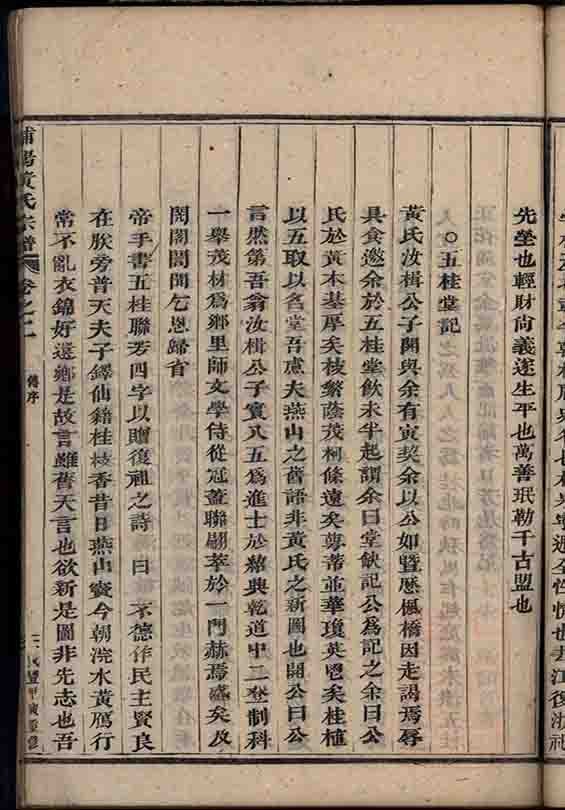 先塋也輕財尚義遂生平也萬善珉勒千古盟也
○五桂堂記
黃氏汝楫公子開與余有寅契余以公如暨歷楓橋因走謁焉辱
具食邀余於五桂堂飲未半起謂余曰堂缺記公為記之余曰公
氏於黃木基厚矣枝繁蔭茂柯條遠矣萼蒂並華瓊英兆矣桂植
以五取以名堂吾慮夫燕山之舊語非黃氏之新圖也開公曰公
言然第吾翁汝楫公子實凡五為進士於紹興乾道中二登制科
一舉茂材為鄉里師文學侍從冠蓋聯翩萃於一門赫焉盛矣及
閔閣開聞乞恩歸省
帝手書五桂聯芳四字以贈復褆之詩 曰 不德作民主賢良
在朕旁普天夫子鐸仙籍桂枝香昔日燕山竇今朝浣水黃鴈行
常不亂衣錦好還鄉是故言雖舊天言也欲新是圖非先志也吾
浦陽黃氏宗譜 卷之二 傳序 咸豐甲寅重修